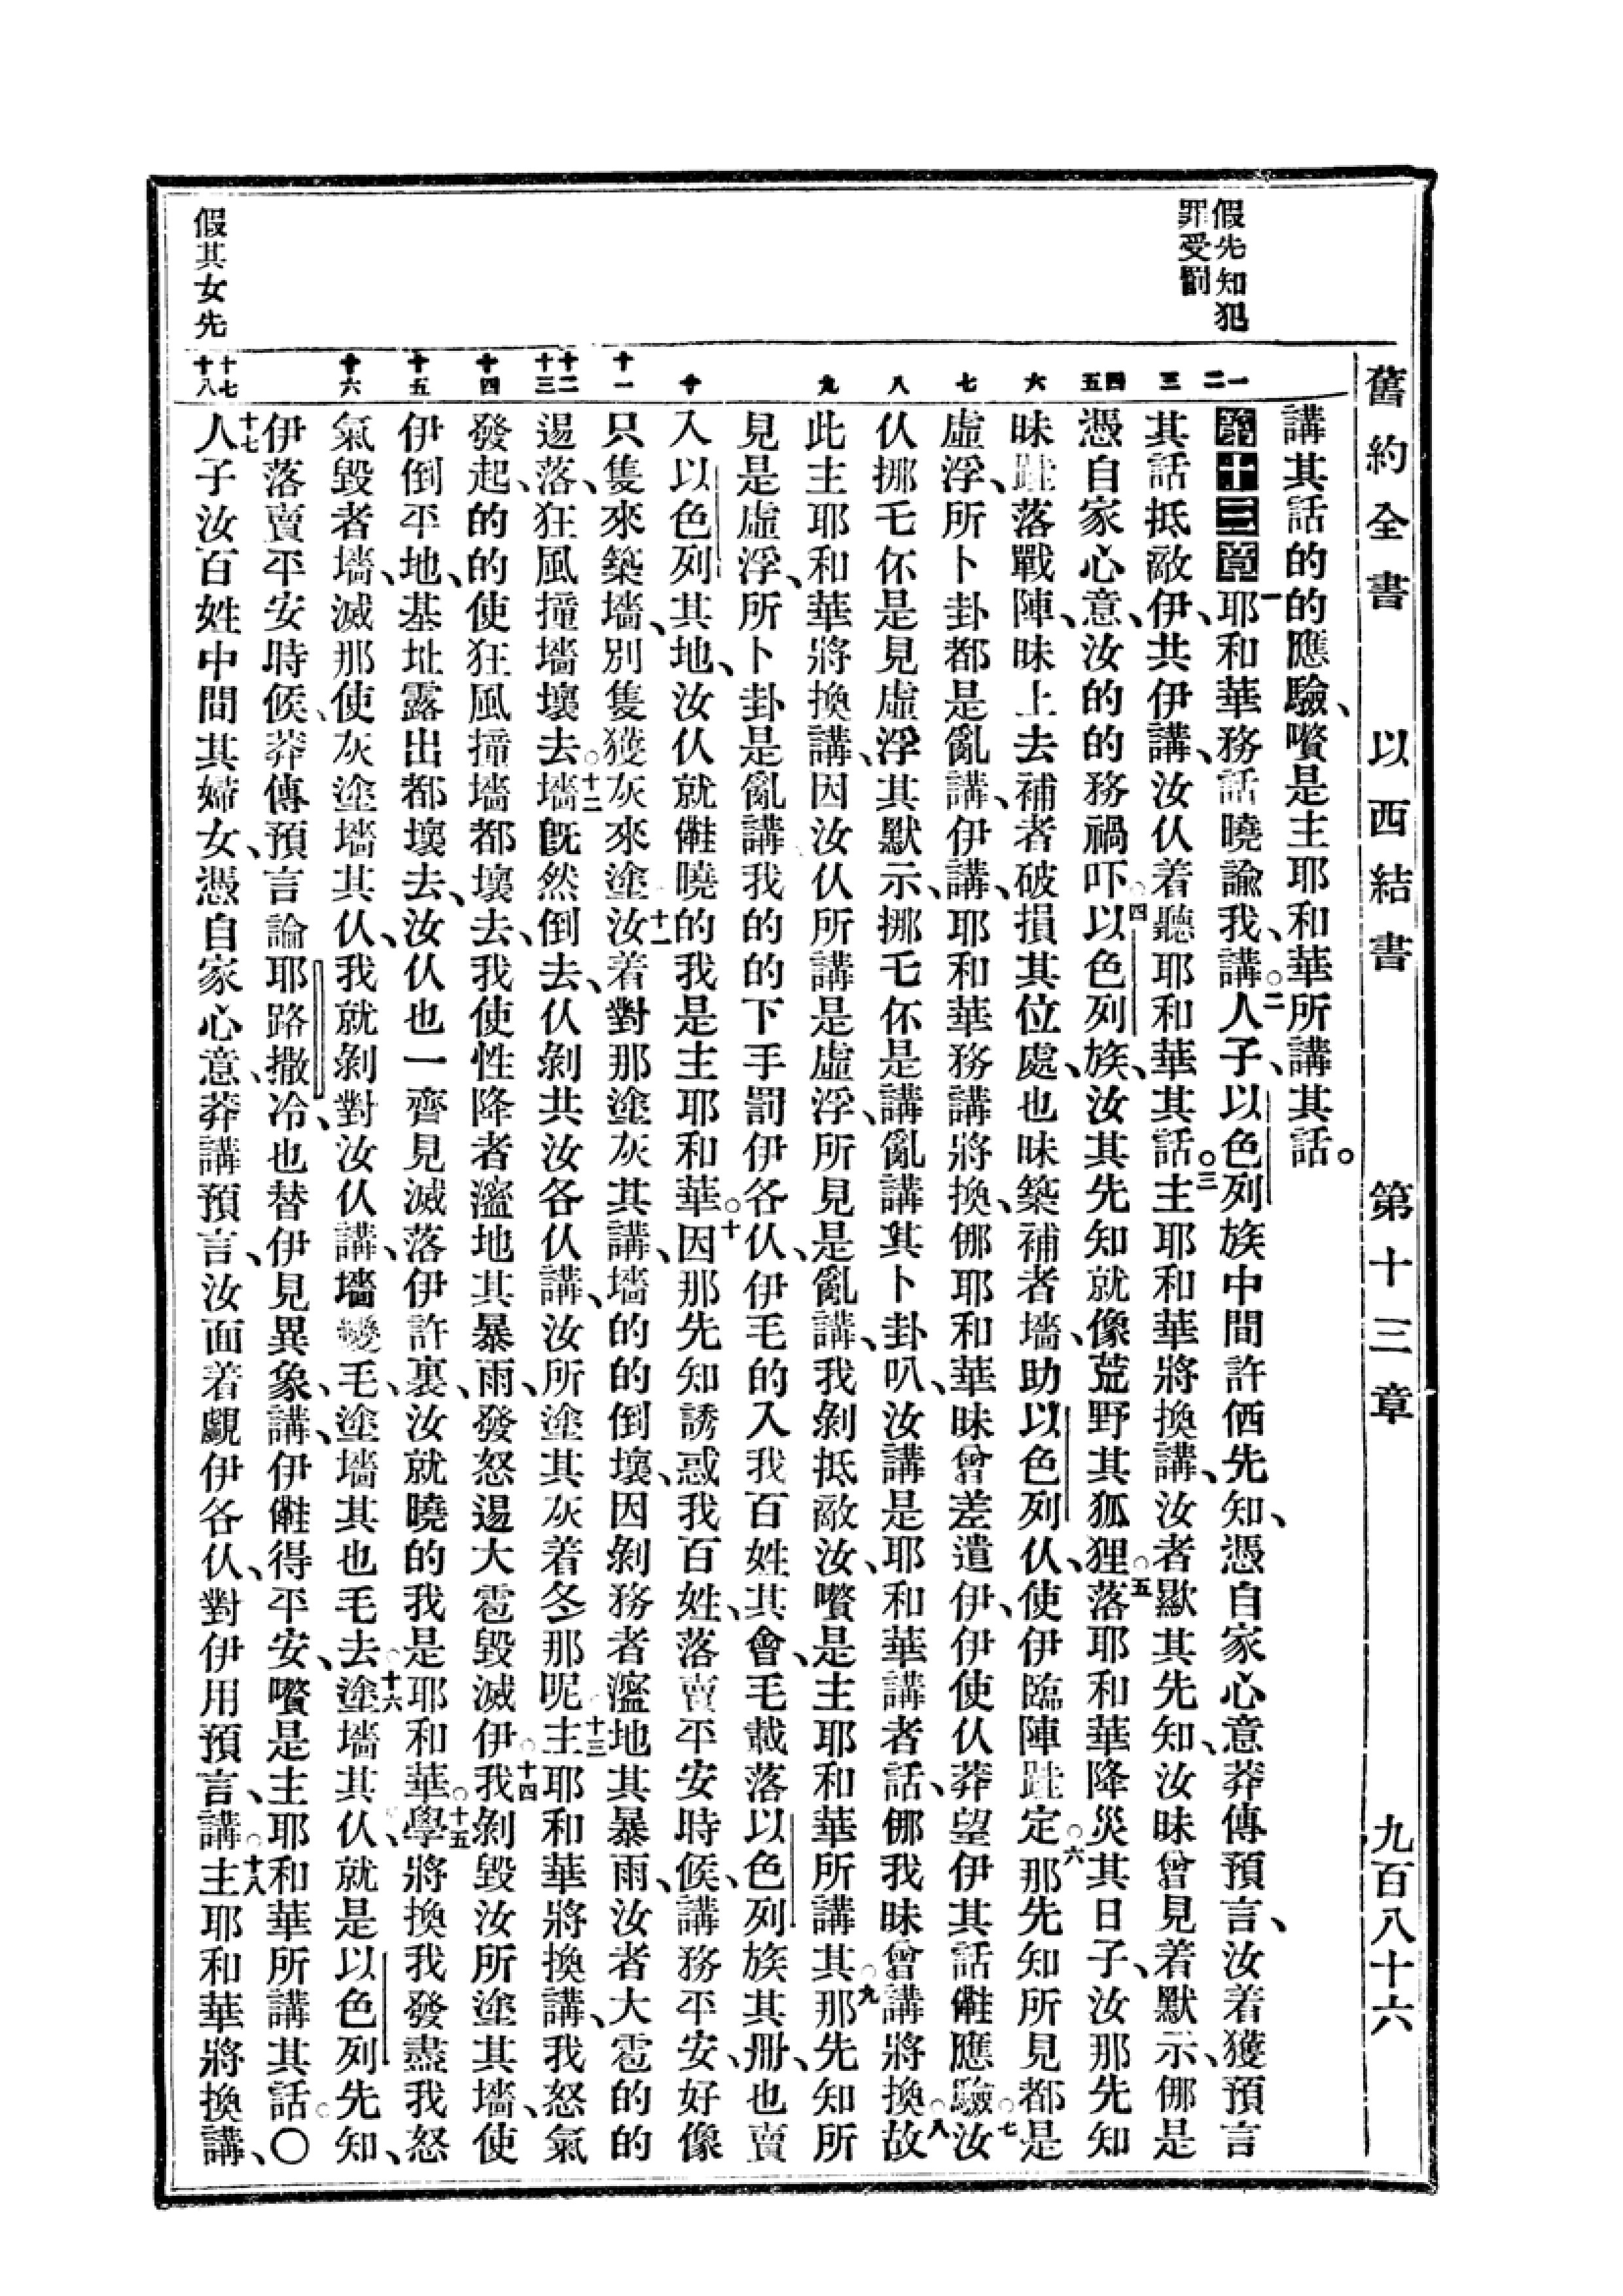 舊約全書 以西結書 第十三章 九百八十六
假先知犯
罪受罰
假其女先
一 二 三 四 五 六 七 八 九 十 十一 十二 十三 十四 十五 十六 十七 十八
講其話的的應驗、嚽是主耶和華所講其話。
第十三章一耶和華務話曉諭我、講。二人子、以色列族中間許価先知、憑自家心意莽傳預言、汝着獲預言
其話抵敵伊、共伊講、汝仈着聽耶和華其話。三主耶和華將換講、汝者歇其先知、汝昧曾見着默示、㑚是
憑自家心意、汝的的務禍吓。四以色列族、汝其先知就像荒野其狐狸。五落耶和華降災其日子、汝那先知
昧跬落戰陣、昧上去補者破損其位處、也昧築補者墻、助以色列仈、使伊臨陣跬定。六那先知所見都是
虛浮、所卜卦都是亂講、伊講、耶和華務講將換、㑚耶和華昧曾差遣伊、伊使仈莽望伊其話僫應驗。七汝
仈挪乇伓是見虛浮其默示、挪乇伓是講亂講其卜卦叭、汝講是耶和華講者話、㑚我昧曾講將換。八故
此主耶和華將換講、因汝仈所講是虛浮、所見是亂講、我剝抵敵汝、嚽是主耶和華所講其。九那先知所
見是虛浮、所卜卦是亂講、我的的下手罰伊各仈、伊毛的入我百姓其會、毛載落以色列族其册、也賣
入以色列其地、汝仈就僫曉的我是主耶和華。十因那先知誘惑我百姓、落賣平安時候、講務平安、好像
只隻來築墻、別隻獲灰來塗。十一汝着對那塗灰其講、墻的的倒壞、因剝務者灆地其暴雨、汝者大雹的的
逿落、狂風撞墻壞去。十二墻旣然倒去、仈剝共汝各仈講、汝所塗其灰着冬那呢。十三主耶和華將換講、我怒氣
發起、的的使狂風撞墻都壞去、我使性降者灆地其暴雨、發怒逿大雹毀滅伊。十四我剝毀汝所塗其墻、使
伊倒平地、基址露出都壞去、汝仈也一齊見滅落伊許裏、汝就曉的我是耶和華。十五學將換我發盡我怒
氣毀者墻、滅那使灰塗墻其仈、我就剝對汝仈講、墻變毛、塗墻其也毛去。十六塗墻其仈就是以色列先知、
伊落賣平安時候、莽傳預言論耶路撒冷、也替伊見異象、講伊僫得平安、嚽是主耶和華所講其話。〇
十七人子汝百姓中間其婦女、憑自家心意、莽講預言、汝面着覷伊各仈、對伊用預言、講。十八主耶和華將換講、